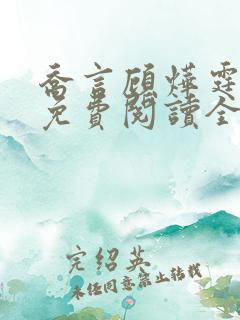 喬言顧燁霆
免費閱讀全
完紹英
未经同意禁止转载